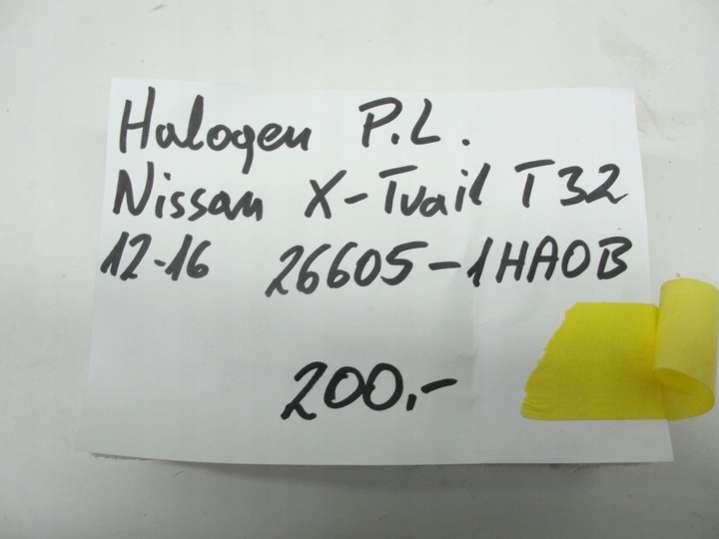 Halogen P.L.
Nissan X-Trail T32
12-16 26605-1HA0B
200,-